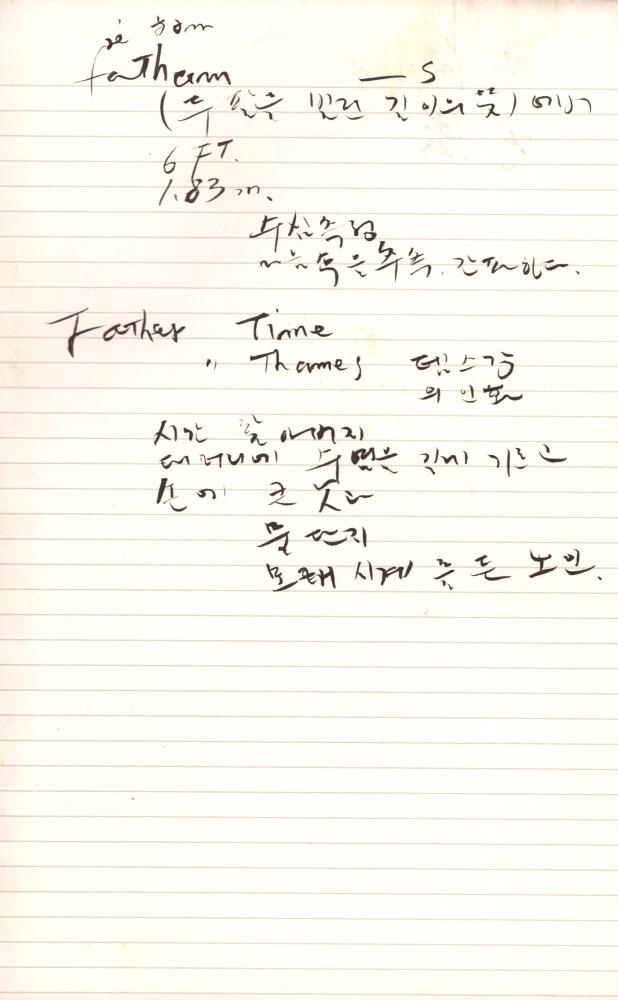 fathom — s
(두 팔을 벌린 길이의 뜻) 에서
6 FT.
1.83 m.
수심측정
마음속을 추측, 간파하다.
Father Time
" Thames 템스강
의 인화
시간 할아버지
대머리에 수염을 길게 기르고
손에 큰 낫과
물단지
모래시계 를 든 노인.